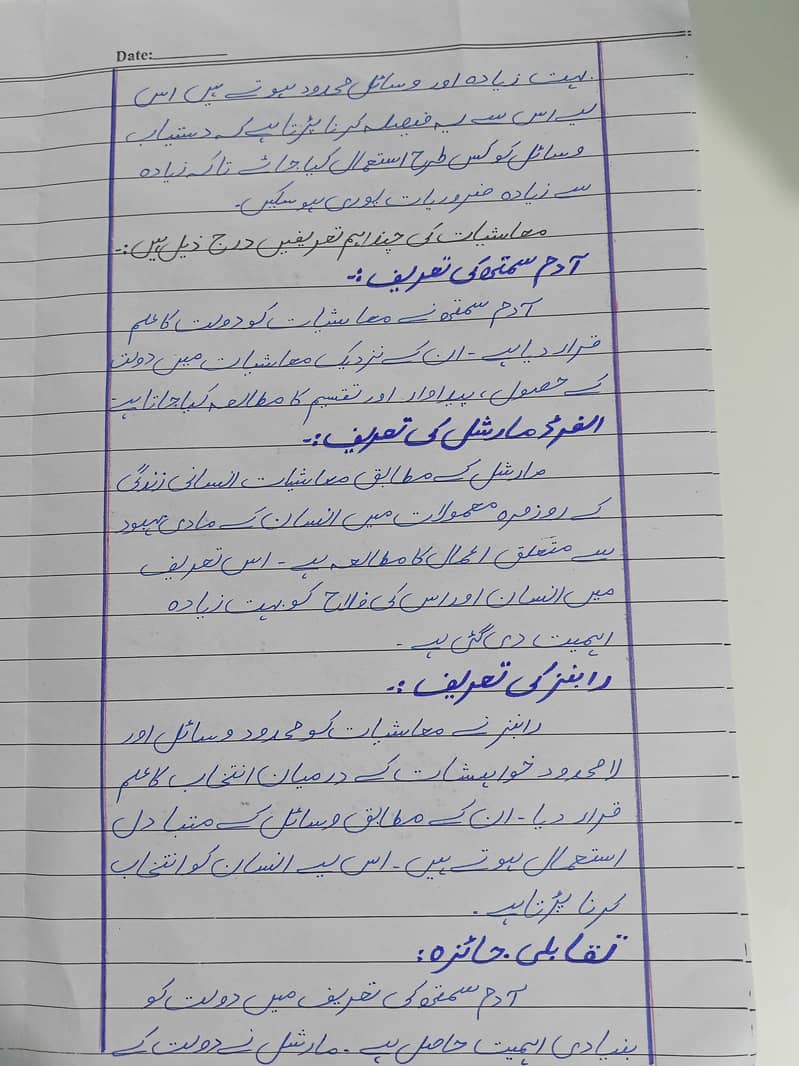 Date:
بہت زیادہ اور وسائل محدود ہوتے ہیں اس
لیے اس سے یہ فیصلہ کرنا پڑتا ہے کہ دستیاب
وسائل کو کس طرح استعمال کیا جائے تاکہ زیادہ
سے زیادہ ضروریات پوری ہو سکیں۔
معاشیات کی چند اہم تعریفیں درج ذیل ہیں:۔
آدم سمتھ کی تعریف :۔
آدم سمتھ نے معاشیات کو دولت کا علم
قرار دیا ہے ۔ ان کے نزدیک معاشیات میں دولت
کے حصول ، پیداوار اور تقسیم کا مطالعہ کیا جاتا ہے
الفرڈ مارشل کی تعریف :۔
مارشل کے مطابق معاشیات انسانی زندگی
کے روزمرہ معمولات میں انسان کے مادی بہبود
سے متعلق اعمال کا مطالعہ ہے ۔ اس تعریف
میں انسان اور اس کی فلاح کو بہت زیادہ
اہمیت دی گئی ہے ۔
رابنز کی تعریف :۔
رابنز نے معاشیات کو محدود وسائل اور
لامحدود خواہشات کے درمیان انتخاب کا علم
قرار دیا ۔ ان کے مطابق وسائل کے متبادل
استعمال ہوتے ہیں ۔ اس لیے انسان کو انتخاب
کرنا پڑتا ہے ۔
تقابلی جائزہ :
آدم سمتھ کی تعریف میں دولت کو
بنیادی اہمیت حاصل ہے ۔ مارشل نے دولت کے